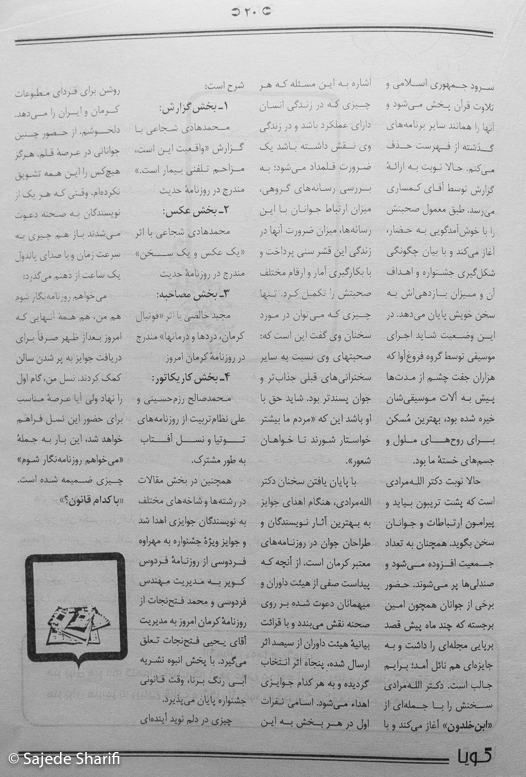 ۲۰
سرود جمهوری اسلامی و
تلاوت قرآن پخش می‌شود و
آنها را همانند سایر برنامه‌های
گذشته از فهرست حذف
می‌کنم. حالا نوبت به ارائهٔ
گزارش توسط آقای کمساری
می‌رسد. طبق معمول صحبتش
را با خوش‌آمدگویی به حضار،
آغاز می‌کند و با بیان چگونگی
شکل‌گیری جشنواره و اهداف
آن و میزان بازدهی‌اش به
سخن خویش پایان می‌دهد. در
این وضعیت شاید اجرای
موسیقی توسط گروه فروغ‌آوا که
هزاران جفت چشم از مدت‌ها
پیش به آلات موسیقی‌شان
خیره شده بود، بهترین مُسکن
برای روح‌های ملول و
جسم‌های خستهٔ ما بود.
حالا نوبت دکتر الله‌مرادی
است که پشت تریبون بیاید و
پیرامون ارتباطات و جوانان
سخن بگوید. همچنان به تعداد
جمعیت افزوده می‌شود و
صندلی‌ها پر می‌شوند. حضور
برخی از جوانان همچون امین
برجسته که چند ماه پیش قصد
برپایی مجله‌ای را داشت و به
جایزه‌ای هم نائل آمد؛ برایم
جالب است. دکتر الله‌مرادی
سخنش را با جمله‌ای از
«ابن‌خلدون» آغاز می‌کند و با
اشاره به این مسئله که هر
چیزی که در زندگی انسان
دارای عملکرد باشد و در زندگی
وی نقش داشته باشد یک
ضرورت قلمداد می‌شود؛ به
بررسی رسانه‌های گروهی،
میزان ارتباط جوانان با این
رسانه‌ها، میزان ضرورت آنها در
زندگی این قشر سنی پرداخت و
با بکارگیری آمار و ارقام مختلف
صحبتش را تکمیل کرد. تنها
چیزی که می‌توان در مورد
سخنان وی گفت این است که:
صحبتهای وی نسبت به سایر
سخنرانی‌های قبلی جذاب‌تر و
جوان پسندتر بود. شاید حق با
او باشد این که «مردم ما بیشتر
خواستار شورند تا خواهان
شعور».
با پایان یافتن سخنان دکتر
الله‌مرادی، هنگام اهدای جوایز
به بهترین آثار نویسندگان و
طراحان جوان در روزنامه‌های
معتبر کرمان است. از آنجه که
پیداست صفی از هیئت داوران و
میهمانان دعوت شده بر روی
صحنه نقش می‌بندد و با قرائت
بیانیهٔ هیئت داوران از سیصد اثر
ارسال شده، پنجاه اثر انتخاب
گردیده و به هر کدام جوایزی
اهداء می‌شود. اسامی نفرات
اول در هر بخش به این
شرح است:
۱ـ بخش گزارش:
محمدهادی شجاعی با
گزارش «واقعیت این است،
مزاحم تلفنی بیمار است.»
مندرج در روزنامهٔ حدیث
۲ـ بخش عکس:
محمدهادی شجاعی با اثر
«یک عکس و یک سخن»
مندرج در روزنامهٔ حدیث
۳ـ بخش مصاحبه:
مجید خالصی با اثر «فوتبال
کرمان، دردها و درمانها» مندرج
در روزنامهٔ کرمان امروز
۴ـ بخش کاریکاتور:
محمدصالح رزم‌حسینی و
علی نظام‌تربیت از روزنامه‌های
توتیا و نسل آفتاب
به طور مشترک.
همچنین در بخش مقالات
در رشته‌ها و شاخه‌های مختلف
به نویسندگان جوایزی اهدا شد
و جوایز ویژهٔ جشنواره به مهراوه
فردوسی از روزنامهٔ فردوس
کویر به مدیریت مهندس
فردوسی و محمد فتح‌نجات از
روزنامهٔ کرمان امروز به مدیریت
آقای یحیی فتح‌نجات تعلق
می‌گیرد. با پخش انبوه نشریه
آبی رنگ برنا، وقت قانونی
جشنواره پایان می‌پذیرد.
چیزی در دلم نوید آینده‌ای
روشن برای فردای مطبوعات
کرمان و ایران را می‌دهد.
دلخوشم. از حضور چنین
جوانانی در عرصهٔ قلم. هرگز
هیچ‌کس را این همه تشویق
نکرده‌ام. وقتی که هر یک از
نویسندگان به صحنه دعوت
می‌شدند باز هم چیزی به
سرعت زمان و با صدای پاندول
یک ساعت از ذهنم می‌گذرد:
می‌خواهم روزنامه‌نگار شوم
هم من، هم همهٔ آنهایی که
امروز بعداز ظهر صرفاً برای
دریافت جوایز به پر شدن سالن
کمک کردند. نسل من، گام اول
را نهاد ولی آیا عرصهٔ مناسب
برای حضور این نسل فراهم
خواهد شد، این بار به جملهٔ
«می‌خواهم روزنامه‌نگار شوم»
چیزی ضمیمه شده است.
«با کدام قانون؟»
گویا
© Sajede Sharifi